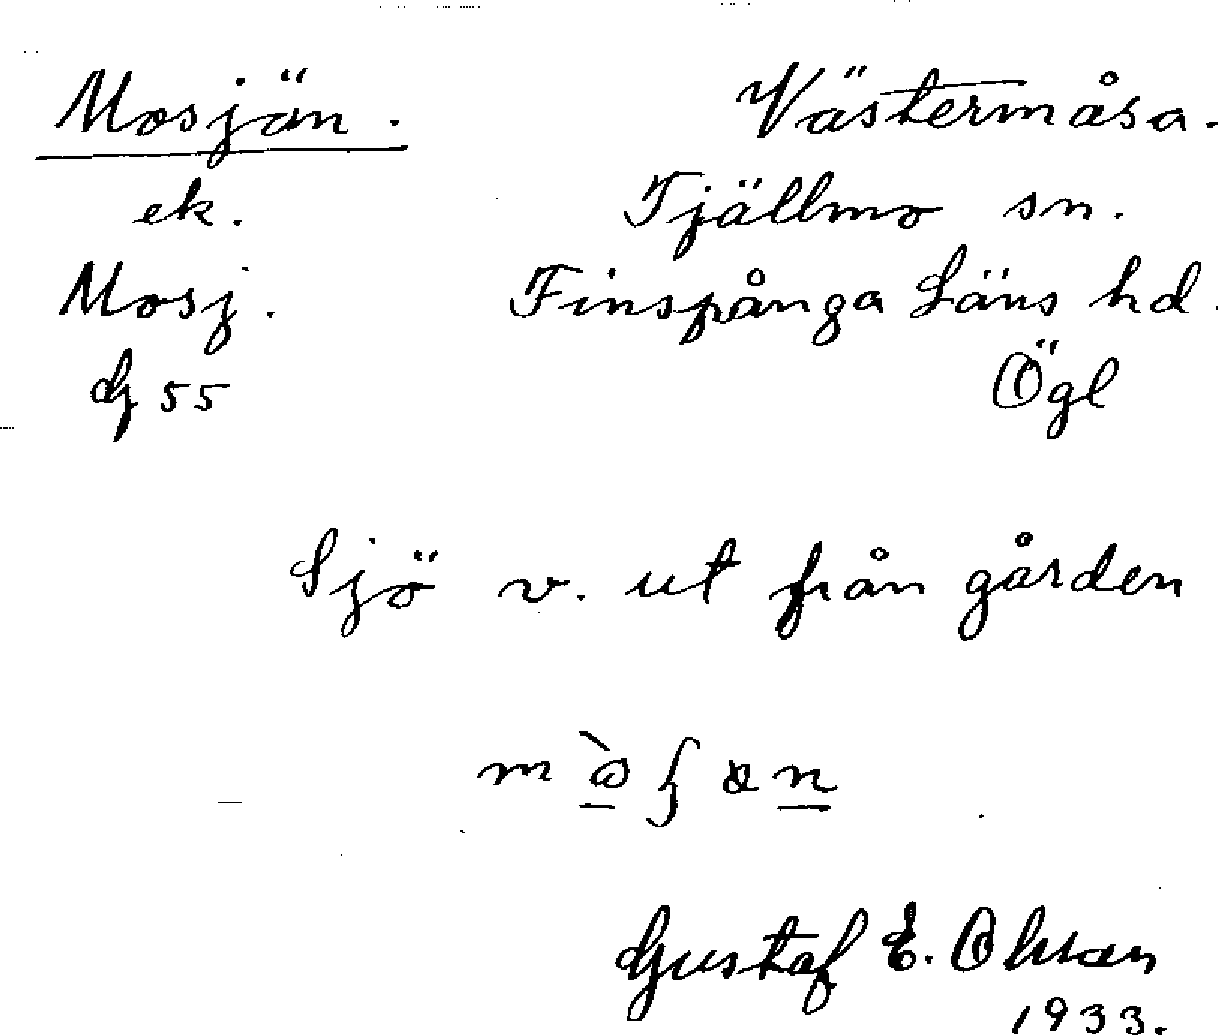 Mosjän. Västermåsa.
ek. Tjällmo sn.
Mosj. Finspånga Läns hd.
G 55 Ögl
Sjö v. ut från gården
Gustaf E. Olsson
1933.